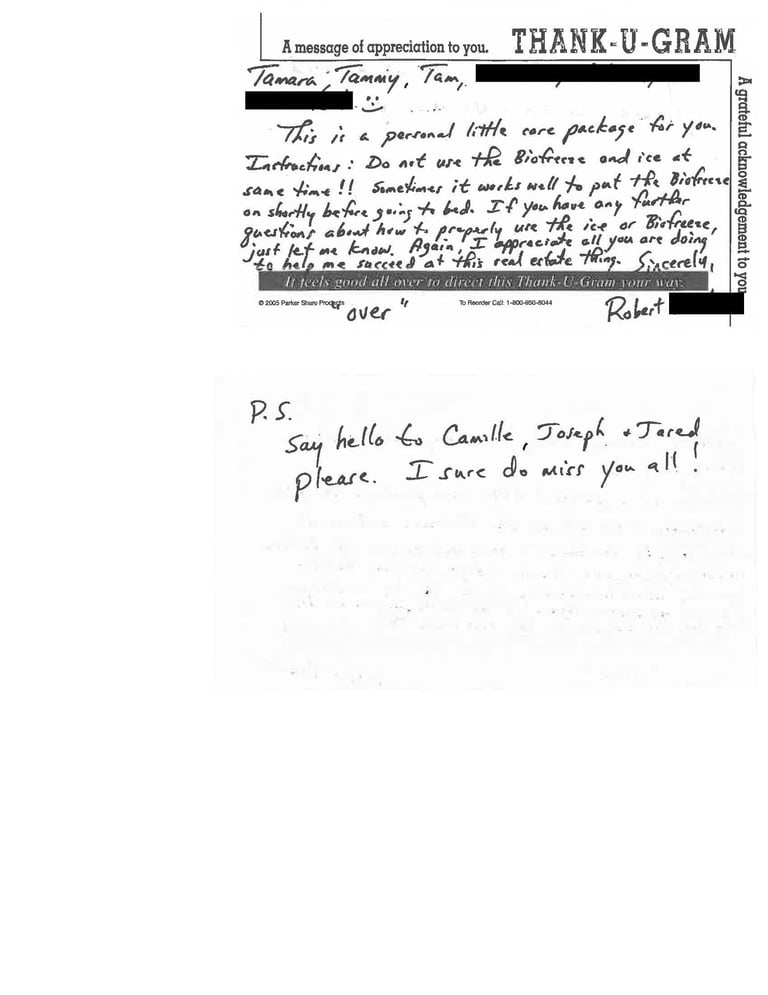 A message of appreciation to you. THANK-U-GRAM
Tamara, Tammy, Tam,
This is a personal little care package for you.
Instructions: Do not use the Biofreeze and ice at
same time!! Sometimes it works well to put the Biofreeze
on shortly before going to bed. If you have any further
questions about how to properly use the ice or Biofreeze,
just let me know. Again, I appreciate all you are doing
to help me succeed at this real estate thing. Sincerely,
It feels good all over to direct this Thank-U-Gram your way.
© 2005 Parker Share Products "over" To Reorder Call: 1-800-650-6044
Robert
A grateful acknowledgement to you
P.S.
Say hello to Camille, Joseph + Jared
please. I sure do miss you all!